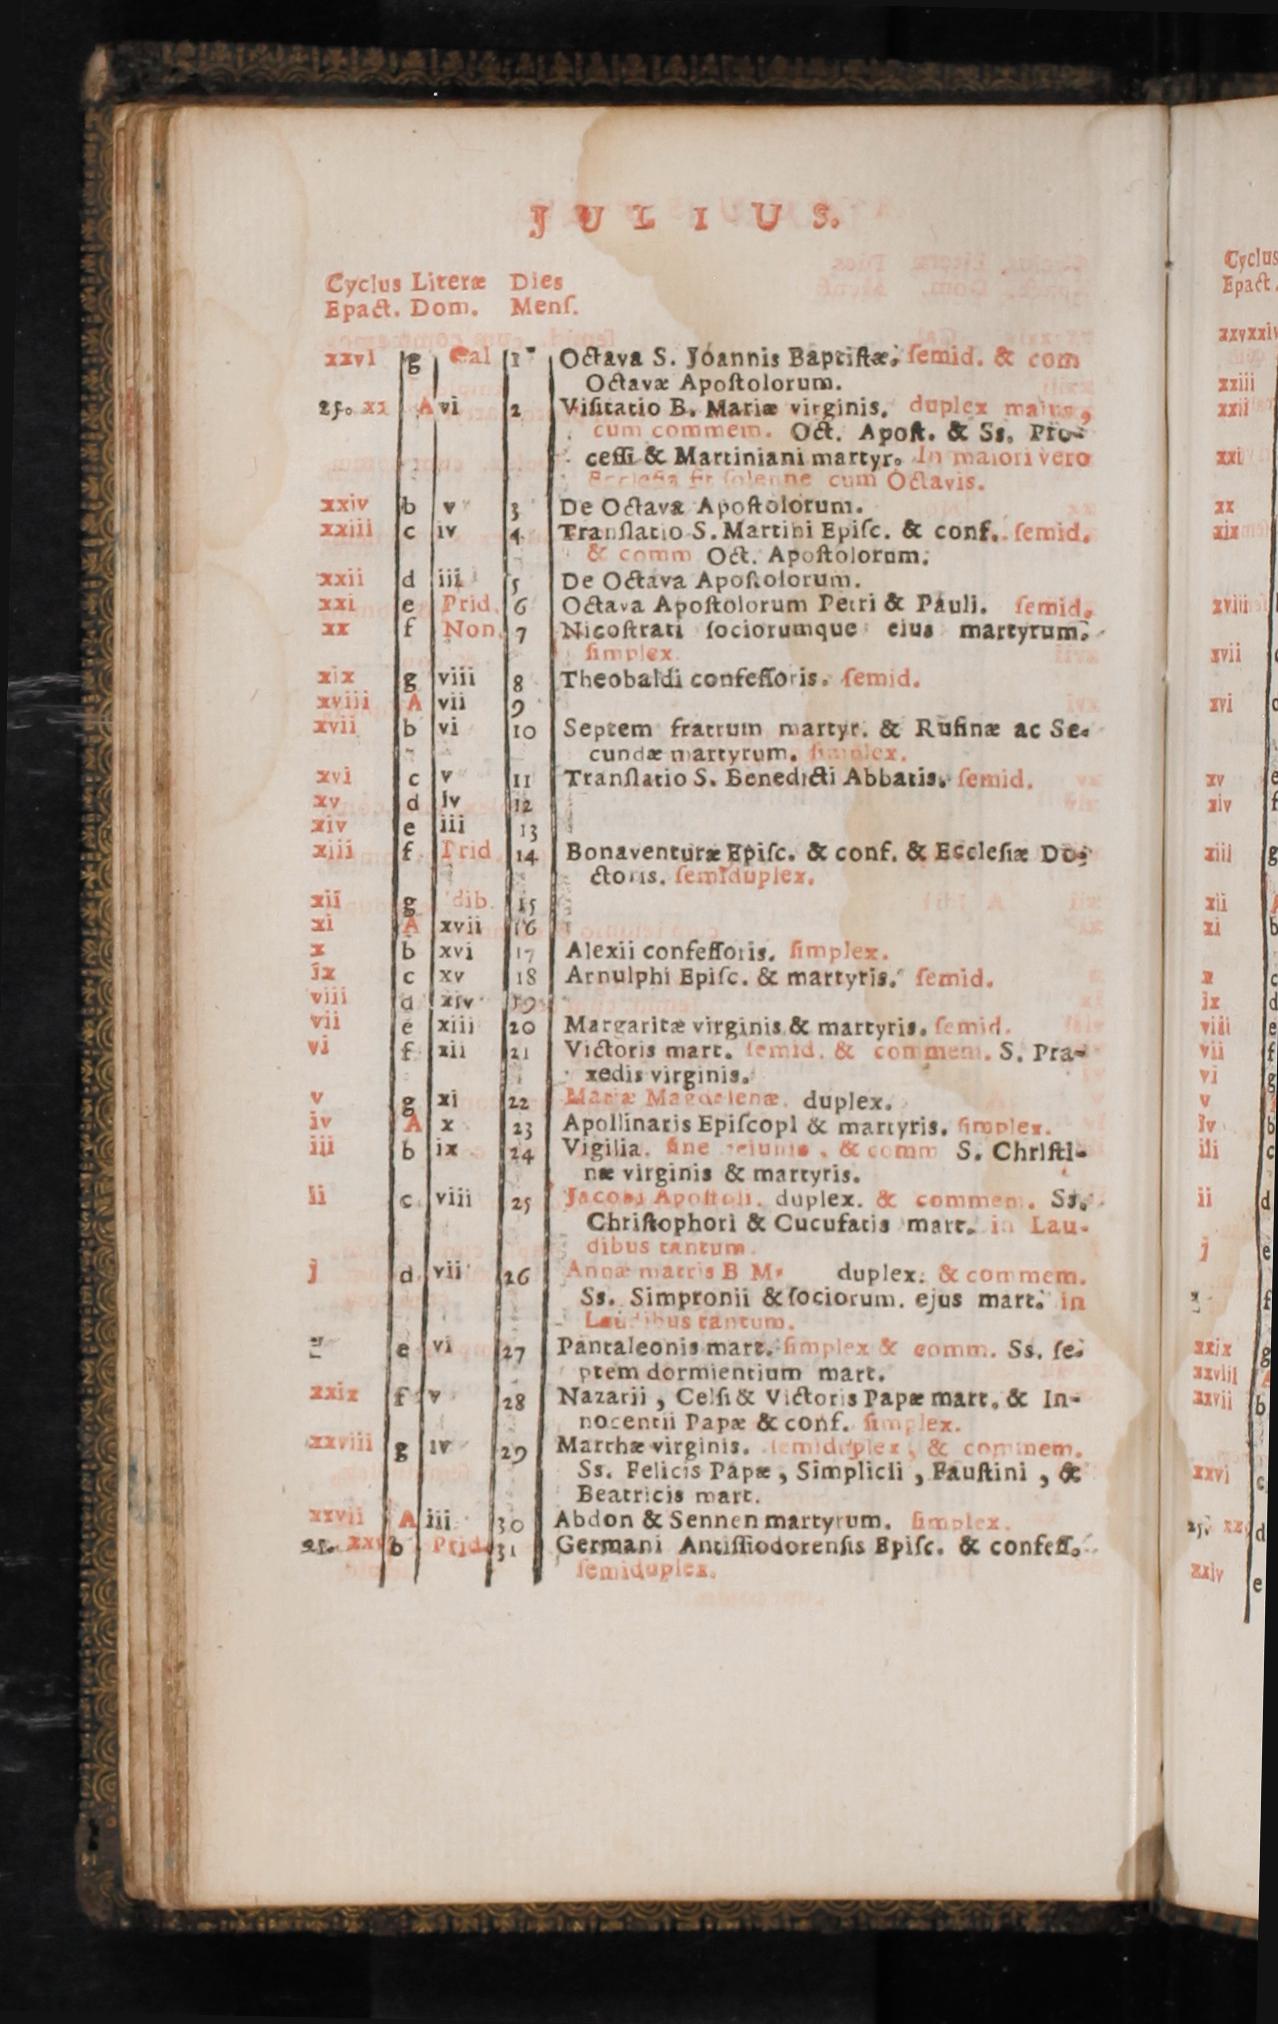 JULIUS.
Cyclus Literæ Dies
Epact. Dom. Mens.
xxvi g Cal 1 Octava S. Joannis Baptistæ. ſemid. & com
Octavæ Apoſtolorum.
25. xx A vi 2 Viſitatio B. Mariæ virginis. duplex maius,
cum commem. Oct. Apoſt. & Ss. Pro-
ceſſi & Martiniani martyr. In maiori vero
Eccleſia fit ſolenne cum Octavis.
xxiv b v 3 De Octava Apoſtolorum.
xxiii c iv 4 Tranſlatio S. Martini Epiſc. & conf. ſemid.
& comm Oct. Apoſtolorum.
xxii d iii 5 De Octava Apoſtolorum.
xxi e Prid. 6 Octava Apoſtolorum Petri & Pauli. ſemid.
xx f Non. 7 Nicoſtrati ſociorumque ejus martyrum.
ſimplex.
xix g viii 8 Theobaldi confeſſoris. ſemid.
xviii A vii 9
xvii b vi 10 Septem fratrum martyr. & Rufinæ ac Se-
cundæ martyrum. ſimplex.
xvi c v 11 Tranſlatio S. Benedicti Abbatis. ſemid.
xv d iv 12
xiv e iii 13
xiii f Prid 14 Bonaventuræ Epiſc. & conf. & Eccleſiæ Do-
ctoris. ſemiduplex.
xii g dib. 15
xi A xvii 16
x b xvi 17 Alexii confeſſoris. ſimplex.
ix c xv 18 Arnulphi Epiſc. & martyris. ſemid.
viii d xiv 19
vii e xiii 20 Margaritæ virginis & martyris. ſemid.
vi f xii 21 Victoris mart. ſemid. & commem. S. Pra-
xedis virginis.
v g xi 22 Mariæ Magdalenæ. duplex.
iv A x 23 Apollinaris Epiſcopi & martyris. ſimplex.
iii b ix 24 Vigilia. ſine jeiunio, & comm S. Chriſti-
næ virginis & martyris.
ii c viii 25 Jacobi Apoſtoli. duplex. & commem. Ss.
Chriſtophori & Cucufatis mart. in Lau-
dibus tantum.
j d vii 26 Annæ matris B M. duplex. & commem.
Ss. Simpronii & ſociorum. ejus mart. in
Laudibus tantum.
e vi 27 Pantaleonis mart. ſimplex & comm. Ss. ſe-
ptem dormientium mart.
xxix f v 28 Nazarii, Celſi & Victoris Papæ mart. & In-
nocentii Papæ & conf. ſimplex.
xxviii g iv 29 Marthæ virginis. ſemiduplex, & commem.
Ss. Felicis Papæ, Simplicii, Fauſtini, &
Beatricis mart.
xxvii A iii 30 Abdon & Sennen martyrum. ſimplex.
25. xxv b Prid. 31 Germani Antiſſiodorenſis Epiſc. & confeſſ.
ſemiduplex.
Cyclus
Epact.
xxiii
xxii
xxi
xx
xix
xviii
xvii
xvi
xv e
xiv f
xiii g
xii
xi b
x c
ix d
viii e
vii f
vi g
v
iv b
iii c
ii d
j e
f
xxix g
xxviii A
xxvii b
xxvi c
25. xx d
xxiv e